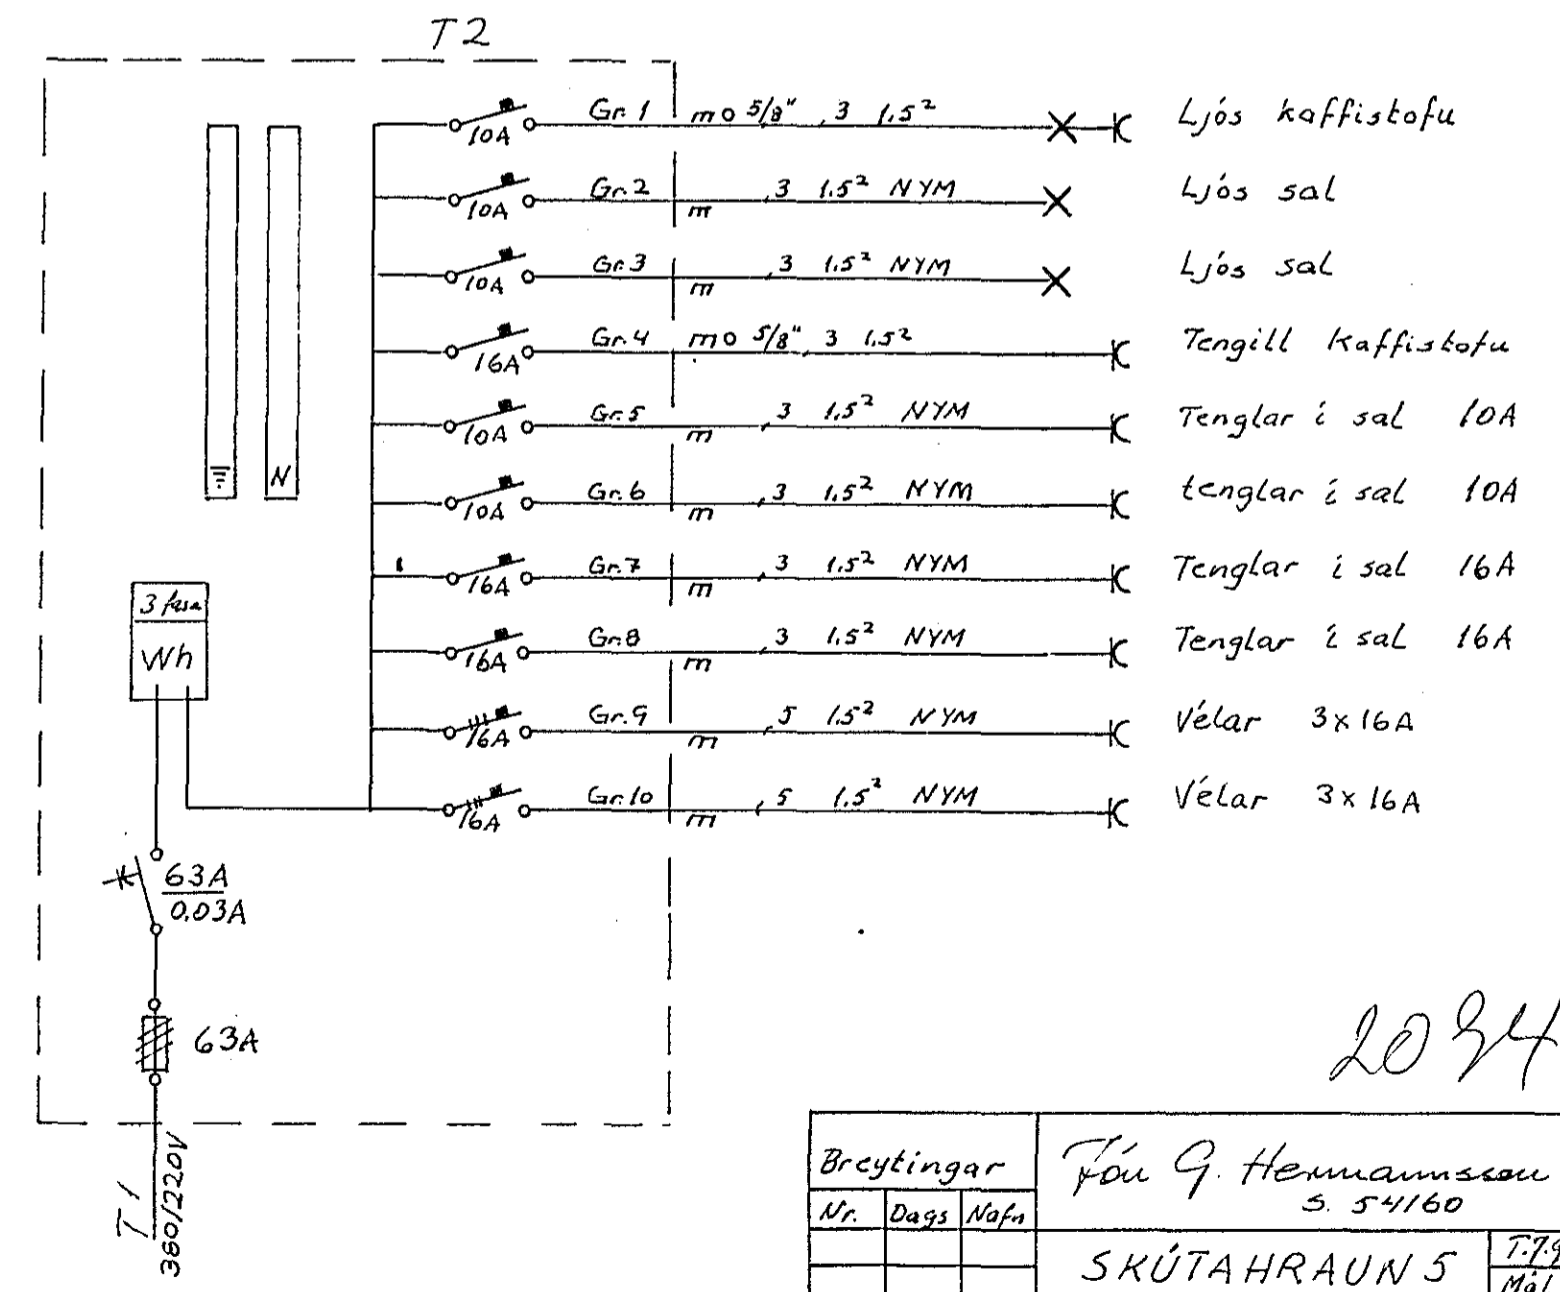 T2
Gr. 1 m o 5/8" , 3 1.5² Ljós kaffistofu
10A
Gr. 2 m , 3 1.5² NYM Ljós sal
10A
Gr. 3 m , 3 1.5² NYM Ljós sal
10A
Gr. 4 m o 5/8" , 3 1.5² Tengill kaffistofu
16A
Gr. 5 m , 3 1.5² NYM Tenglar í sal 10A
10A
Gr. 6 m , 3 1.5² NYM tenglar í sal 10A
10A
N
Gr. 7 m , 3 1.5² NYM Tenglar í sal 16A
16A
3 fasa
Wh
Gr. 8 m , 3 1.5² NYM Tenglar í sal 16A
16A
Gr. 9 m , 5 1.5² NYM Vélar 3x16A
16A
Gr. 10 m , 5 1.5² NYM Vélar 3x16A
16A
63A
0,03A
63A
T1
380/220V
Breytingar
Nr. Dags Nafn
Jón G. Hermannsson
S. 54160
SKÚTAHRAUN 5
Mál